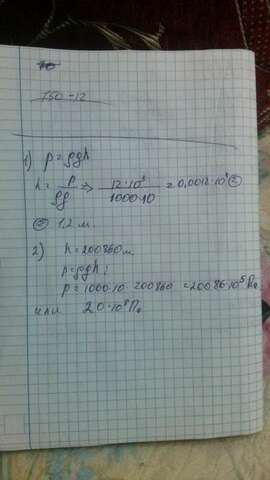 750-12
1) p = ρgh
h = p/ρg => 12·10³/1000·10 = 0,0012·10³ =
= 1,2 м.
2) h = 200860 м
p = ρgh;
p = 1000·10·200860 = 20086·10⁵ Па
или 20·10⁸ Па